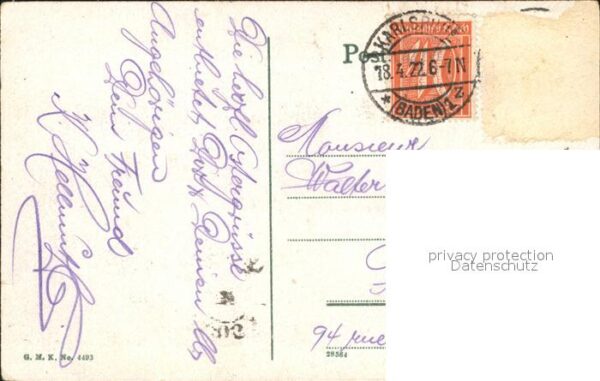 Die herzl. Ostergrüsse
entbietet Dir & Deinen lb.
Angehörigen
Dein Freund
K. Hellmuth
G. M. K. No. 4493
Post
KARLSRUHE
18.4.22.6-7N
* (BADEN) 1 z
Monsieur
Walter
94 rue
29364
privacy protection
Datenschutz